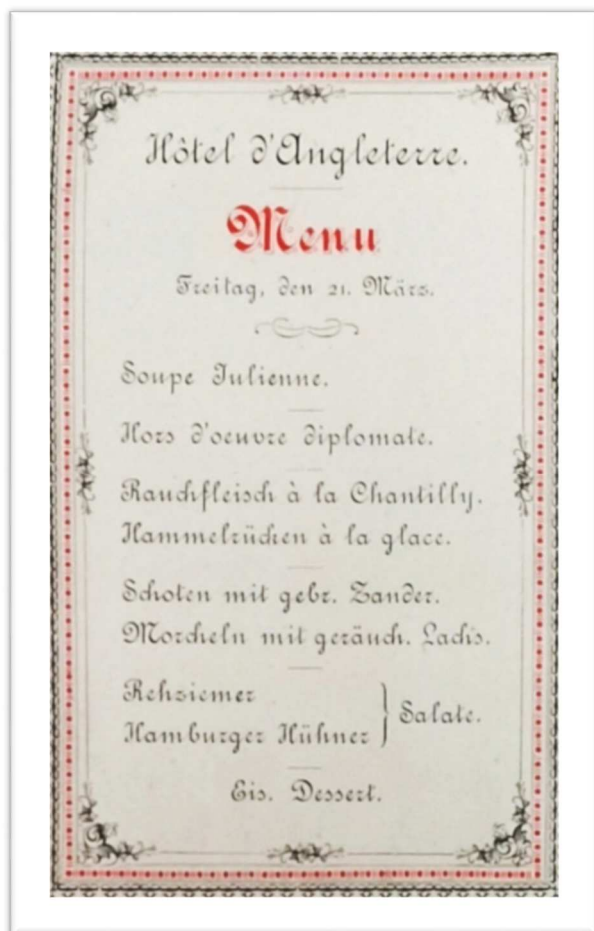 Hôtel d'Angleterre.
Menu
Freitag, den 21. März.
Soupe Julienne.
Hors d'oeuvre diplomate.
Rauchfleisch à la Chantilly.
Hammelrücken à la glace.
Schoten mit gebr. Zander.
Morcheln mit geräuch. Lachs.
Rehziemer
Hamburger Hühner } Salate.
Eis. Dessert.